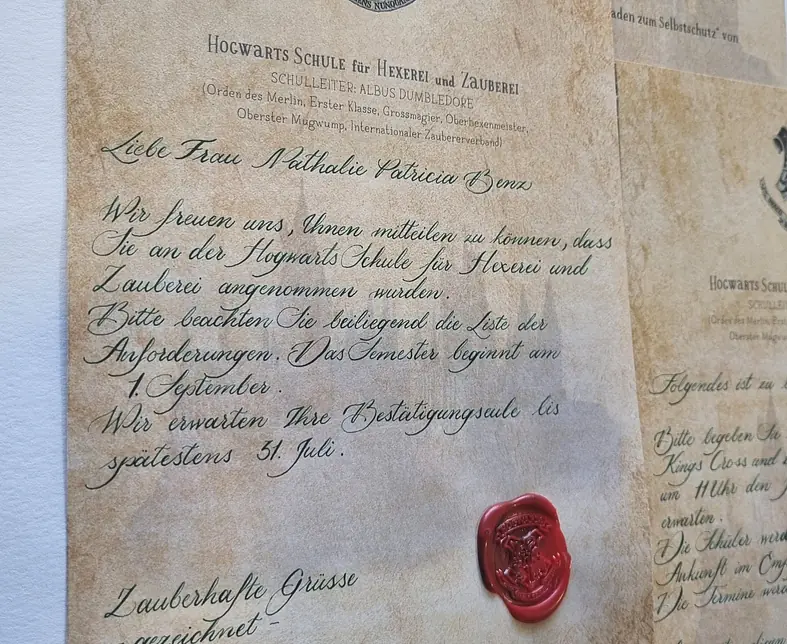 HOGWARTS SCHULE für HEXEREI und ZAUBEREI
SCHULLEITER: ALBUS DUMBLEDORE
(Orden des Merlin, Erster Klasse, Grossmagier, Oberhexenmeister,
Oberster Mugwump, Internationaler Zaubererverband)
Liebe Frau Nathalie Patricia Benz
Wir freuen uns, Ihnen mitteilen zu können, dass
Sie an der Hogwarts Schule für Hexerei und
Zauberei angenommen wurden.
Bitte beachten Sie beiliegend die Liste der
Anforderungen. Das Semester beginnt am
1. September.
Wir erwarten Ihre Bestätigungseule bis
spätestens 31. Juli.
Zauberhafte Grüsse
gezeichnet
aden zum Selbstschutz" von
HOGWARTS SCHUL
(Orden des Merlin, Ers
Oberster Mugwu
Folgendes ist zu
Bitte begeben Sie
Kings Cross und
um 11 Uhr den
erwarten.
Die Schüler werd
Ankunft im
Die Termine werd